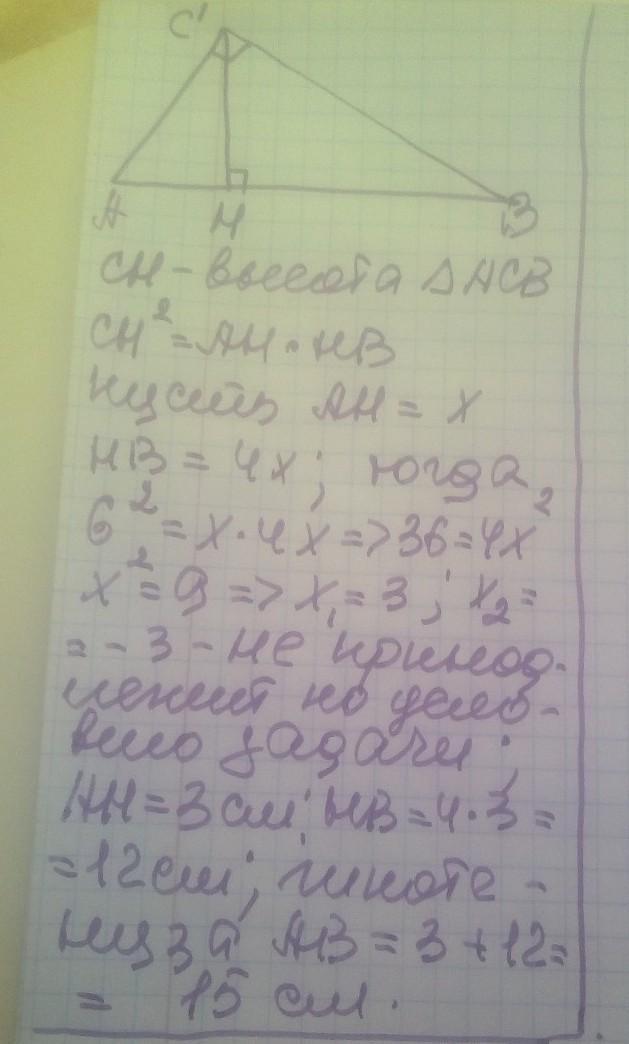 C
A H B
CH - высота △ACB
CH² = AH · HB
Пусть AH = x
HB = 4x; тогда
6² = x · 4x => 36 = 4x²
x² = 9 => x₁ = 3; x₂ =
= - 3 - не принад-
лежит по усло-
вию задачи;
AH = 3 см; HB = 4 · 3 =
= 12 см; гипоте-
нуза AB = 3 + 12 =
= 15 см.